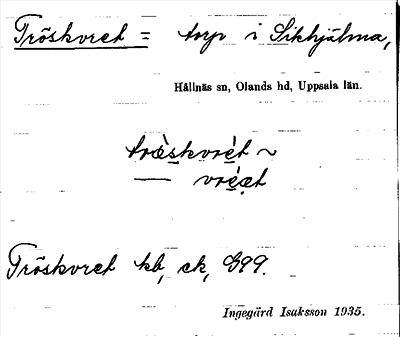 Tröskvret = torp i Sikhjälma,
Hållnäs sn, Olands hd, Uppsala län.
træ̀skvrèt ~
— vrèæt
Tröskvret kb, ek, G99.
Ingegärd Isaksson 1935.